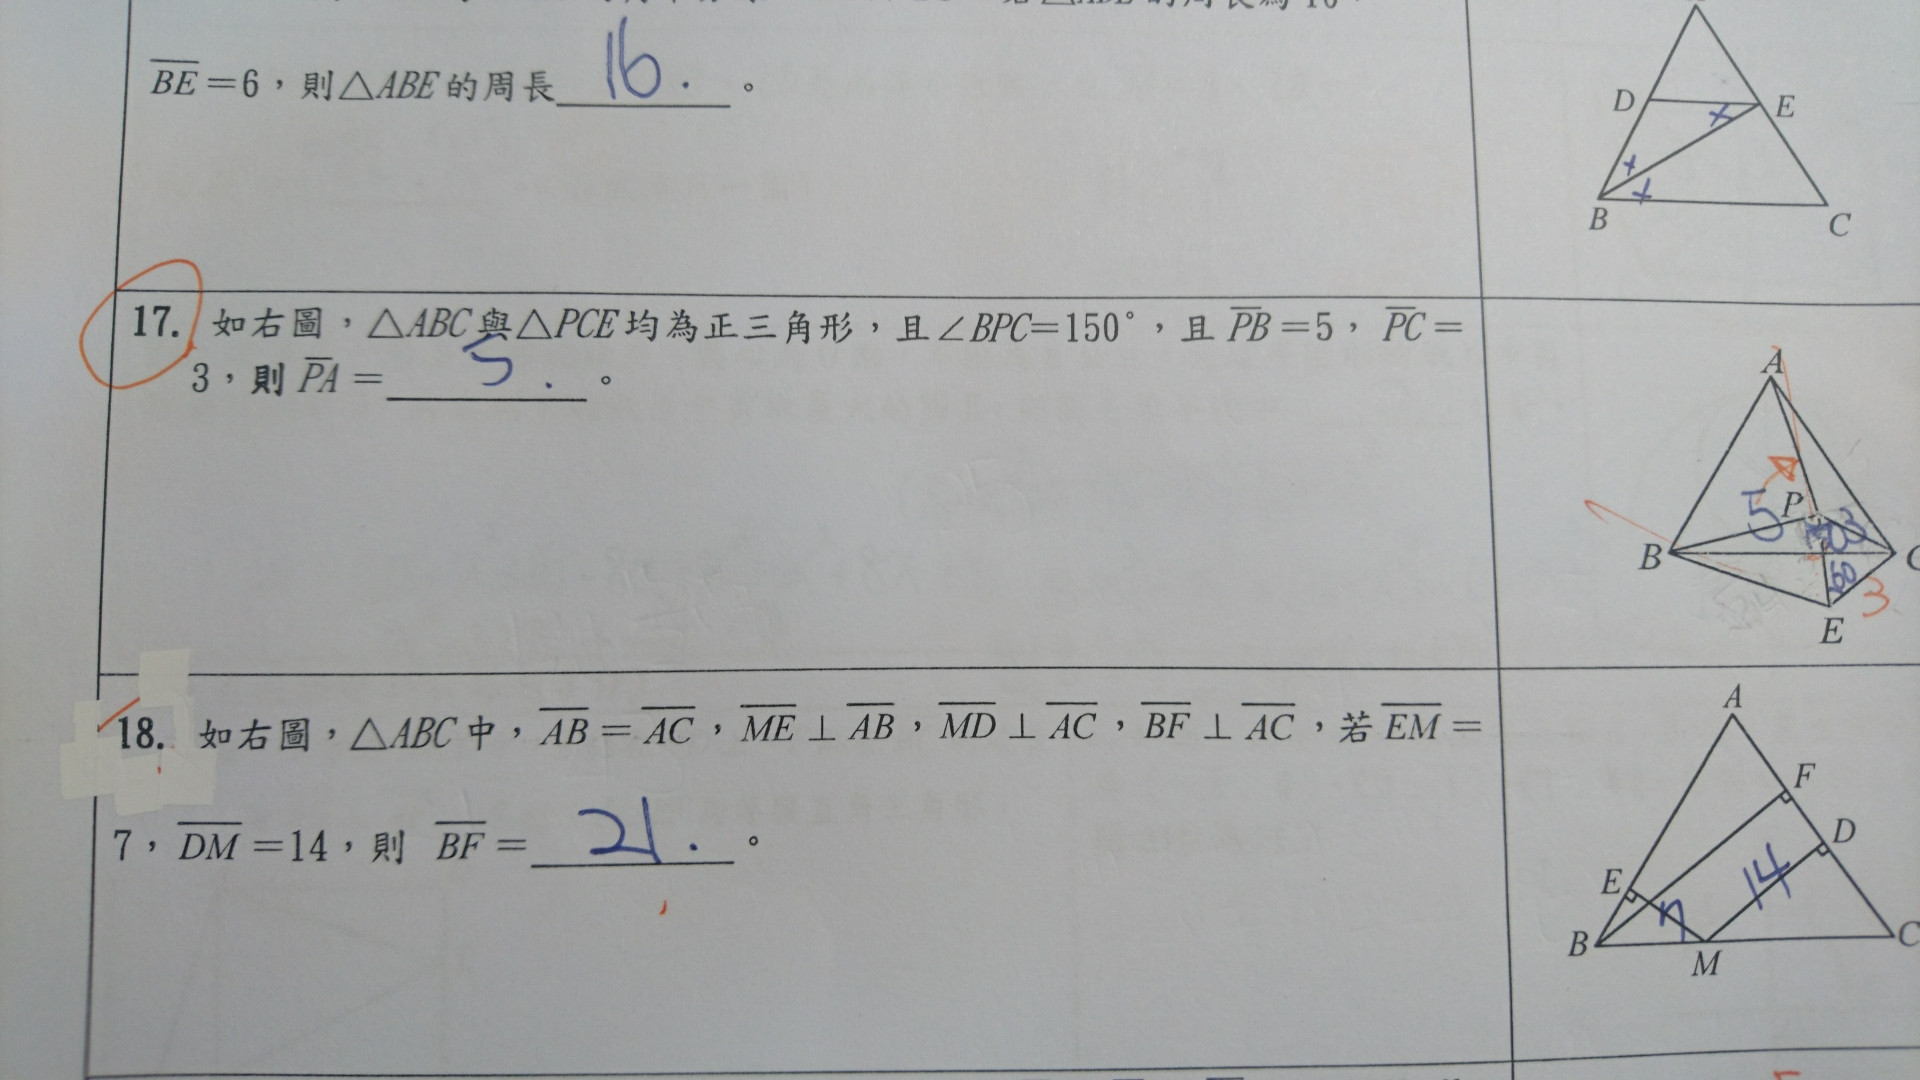 的周長為
BE=6，則△ABE的周長 16. 。
D
E
B
C
17. 如右圖，△ABC與△PCE均為正三角形，且∠BPC=150°，且 PB=5，PC=
3，則 PA= 5. 。
A
5
P
3
B
C
60
3
E
18. 如右圖，△ABC中，AB=AC，ME⊥AB，MD⊥AC，BF⊥AC，若EM=
7，DM=14，則 BF= 21. 。
A
F
D
E
14
7
B
C
M